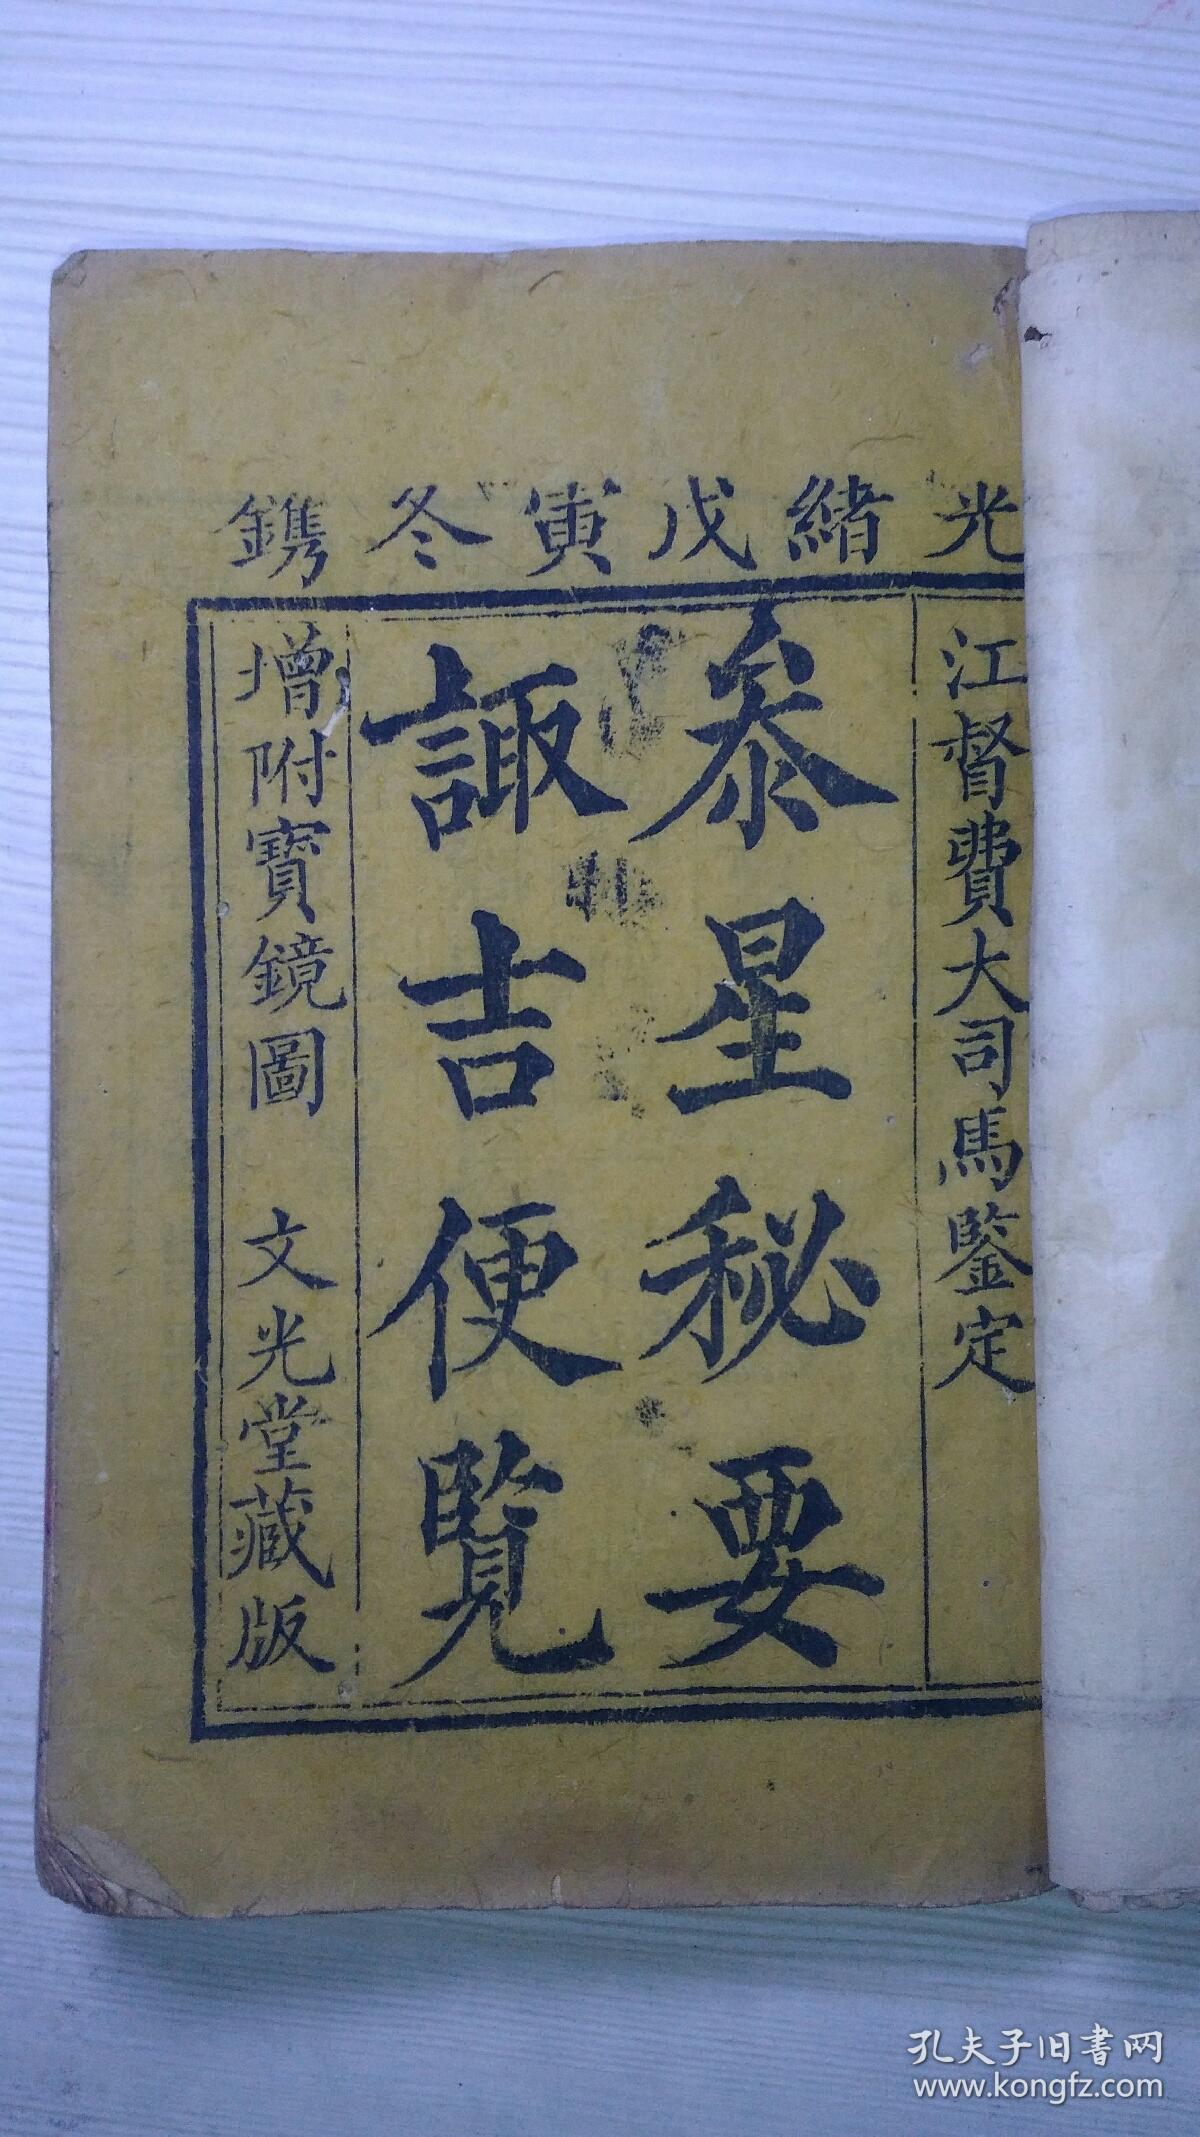 光緒戊寅冬鐫
江督費大司馬鑒定
叅星秘要
諏吉便覽
增附寶鏡圖 文光堂藏版
孔夫子旧书网
www.kongfz.com